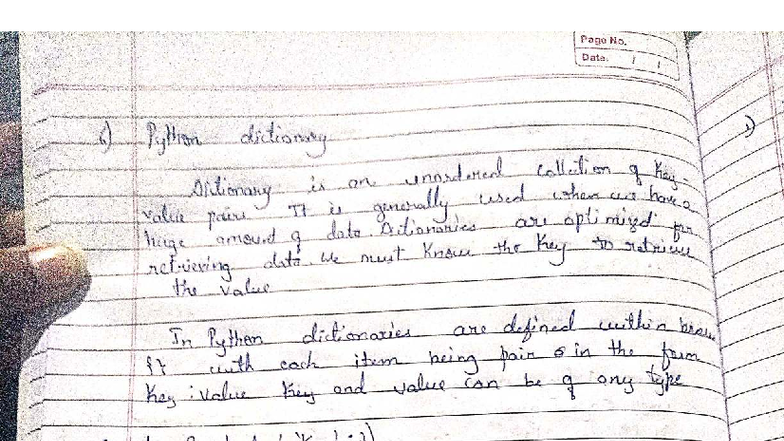 Page No.
Date. / /
6) Python dictionary
Dictionary is an unordered collection of key-
value pairs. It is generally used when we have a
huge amound of data. Dictionaries are optimized for
retrieving data. We must know the key to retrieve
the value
In Python dictionaries are defined within
{} with each item being pair in the form
key : value key and value can be of any type